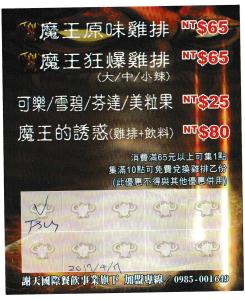 魔王原味雞排 NT$65
魔王狂爆雞排 NT$65
(大/中/小辣)
可樂/雪碧/芬達/美粒果 NT$25
魔王的誘惑(雞排+飲料) NT$80
消費滿65元以上可集1點
集滿10點可免費兌換雞排乙份
(此優惠不得與其他優惠併用)
謝天國際餐飲事業旗下 加盟專線/0985-001649